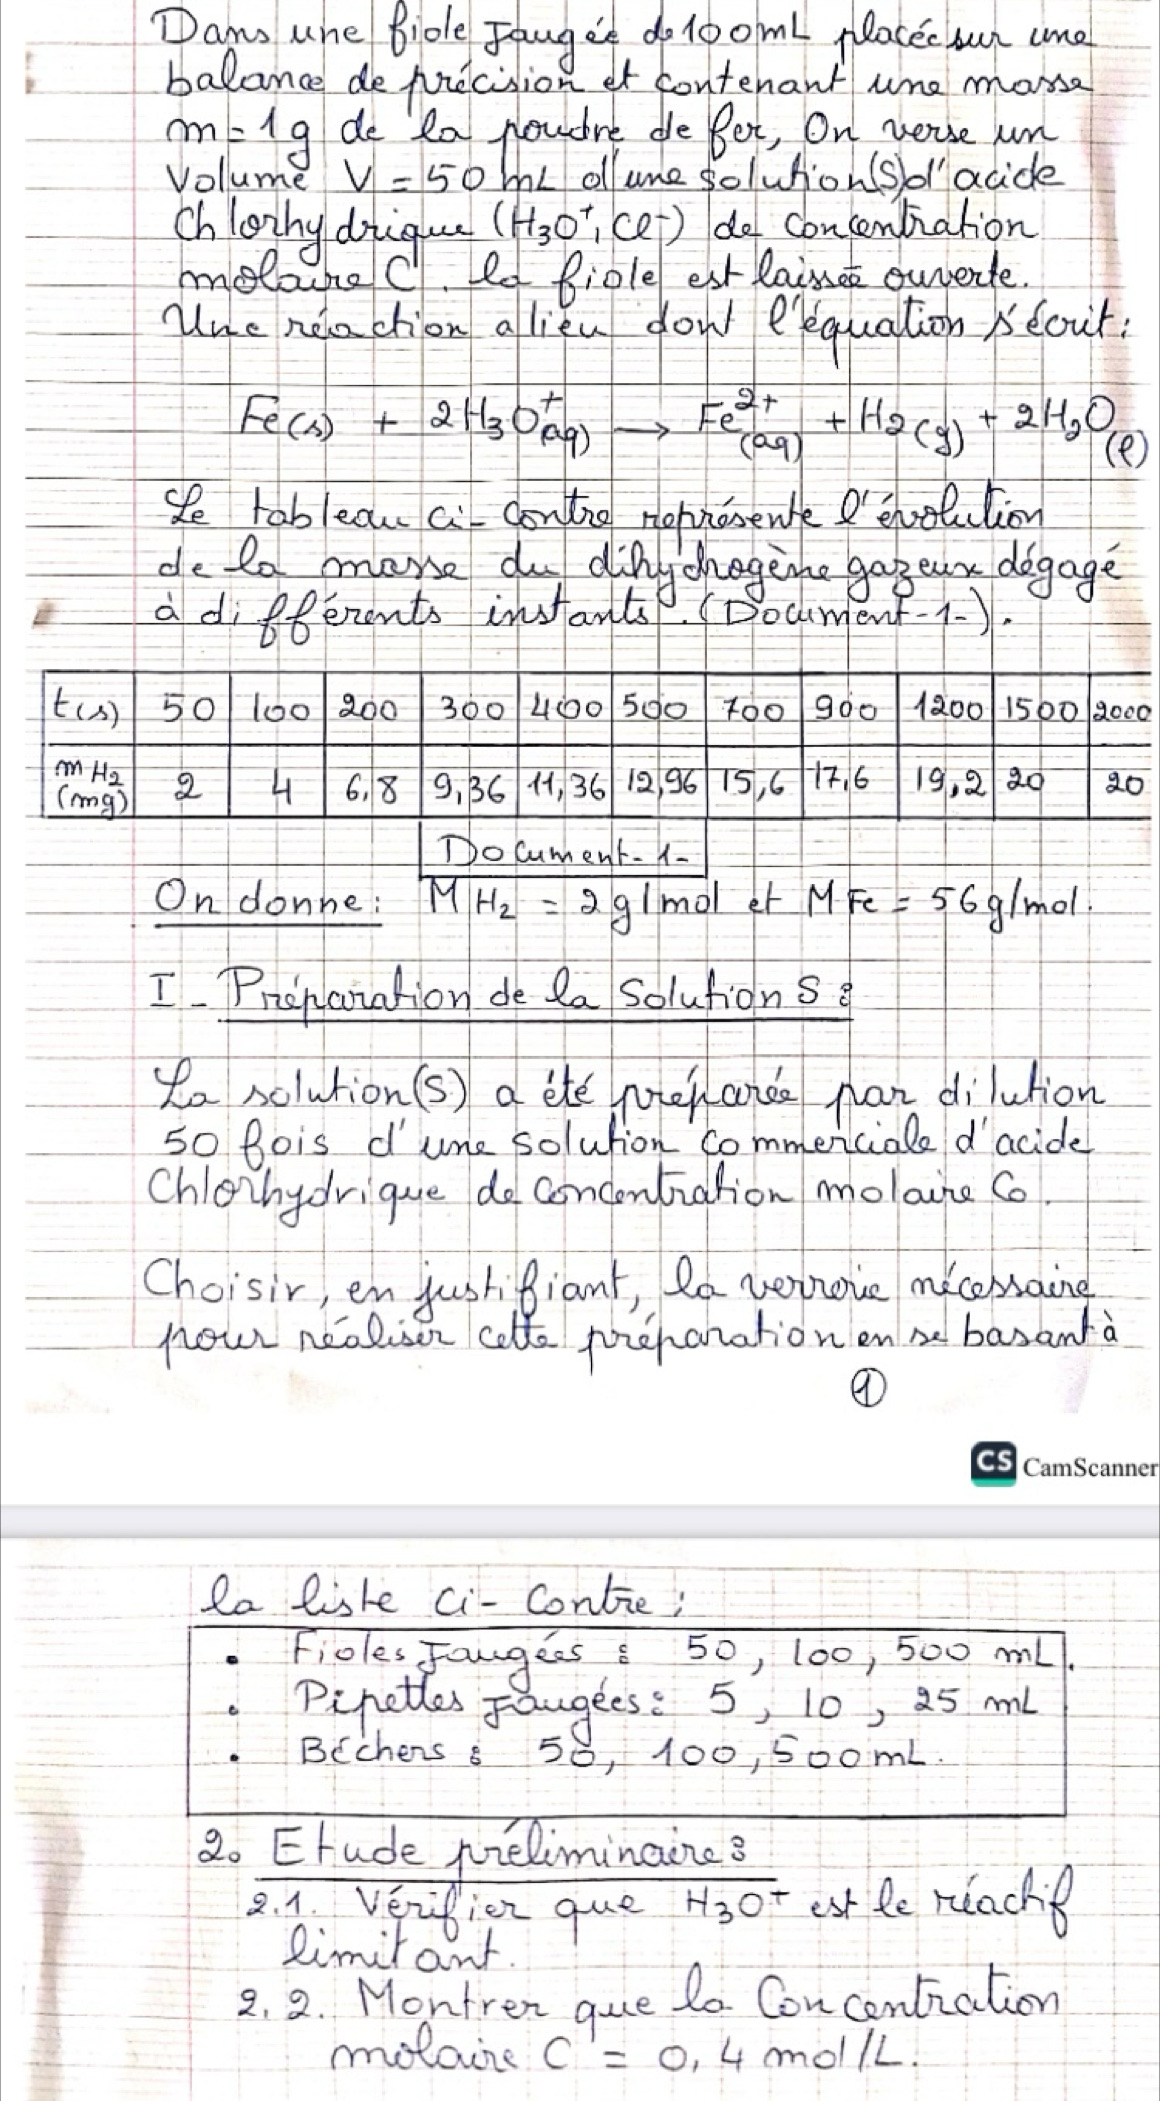 Dans une fiole Jaugée de 100 mL placée sur une
balance de précision et contenant une masse
m = 1 g de la poudre de fer, On verse un
Volume V = 50 mL d'une solution(S) d'acide
Chlorhydrique (H3O⁺, Cl⁻) de concentration
molaire C. la fiole est laissée ouverte.
Une réaction a lieu dont l'équation s'écrit :
Fe(s) + 2H3O⁺(aq) → Fe²⁺(aq) + H2(g) + 2H2O(l)
Le tableau ci-contre représente l'évolution
de la masse du dihydrogène gazeux dégagé
à différents instants. (Document-1-).
t(s) 50 100 200 300 400 500 700 900 1200 1500 2000
mH2 (mg) 2 4 6,8 9,36 11,36 12,96 15,6 17,6 19,2 20 20
Document-1-
On donne : M H2 = 2 g/mol et M Fe = 56 g/mol.
I - Préparation de la Solution S :
La solution(S) a été préparée par dilution
50 fois d'une solution commerciale d'acide
Chlorhydrique de concentration molaire C0.
Choisir, en justifiant, la verrerie nécessaire
pour réaliser cette préparation en se basant à
①
CS CamScanner
la liste ci-contre :
• Fioles Jaugées : 50, 100, 500 mL.
• Pipettes Jaugées : 5, 10, 25 mL
• Béchers : 50, 100, 500 mL.
2. Etude préliminaire :
2.1. Vérifier que H3O⁺ est le réactif
limitant.
2.2. Montrer que la Concentration
molaire C = 0,4 mol/L.